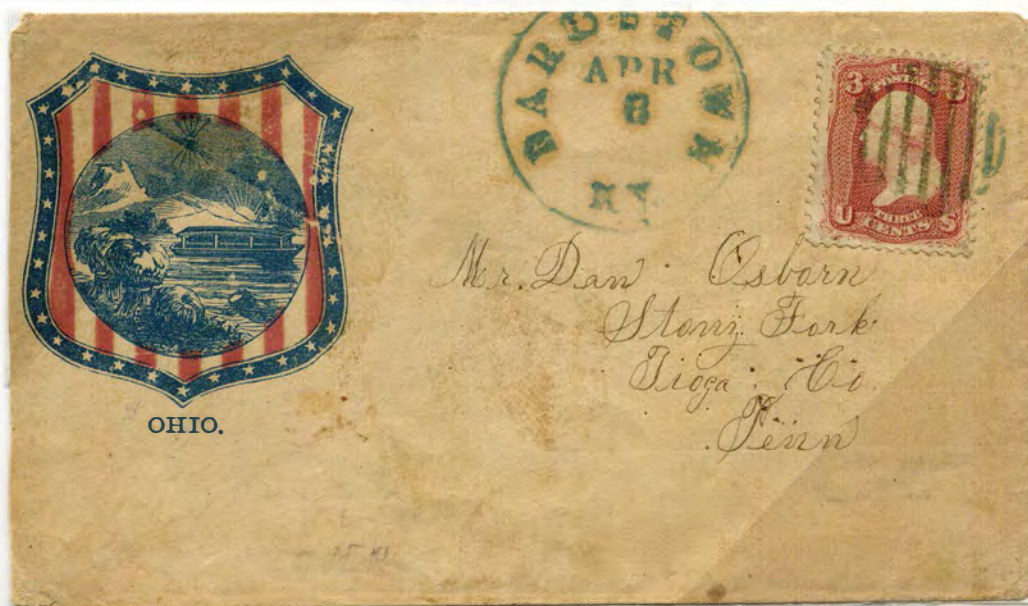 BARDSTOWN
APR
8
KY
3 U.S. POSTAGE 3
U THREE CENTS S
Mr. Dan Osborn
Stony Fork
Tioga Co
Penn
OHIO.